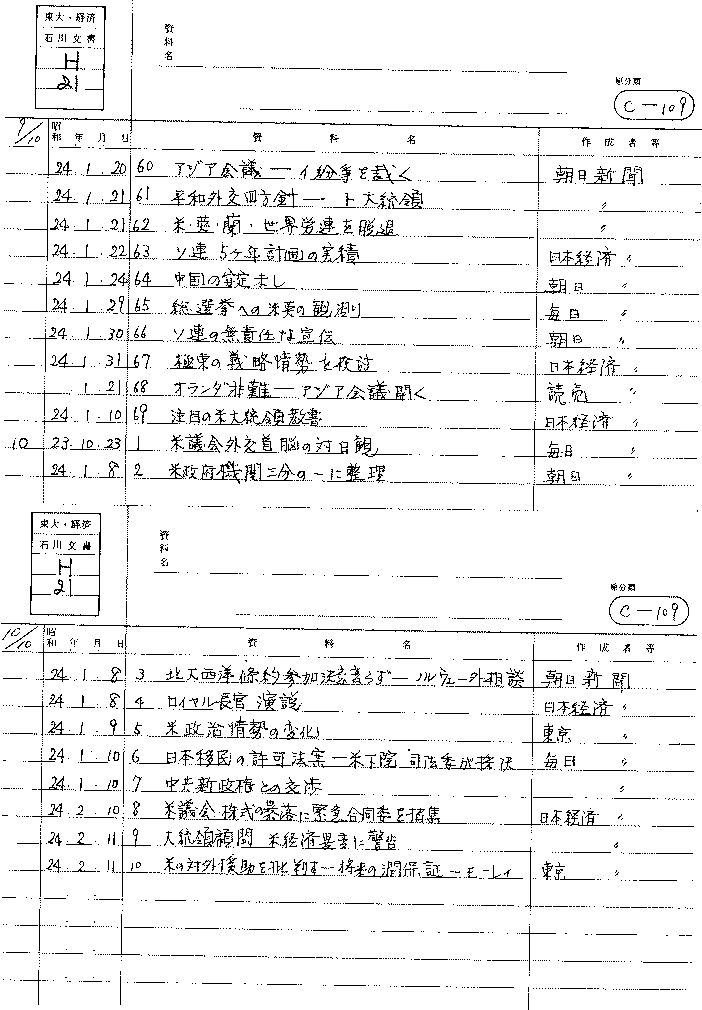 東大・経済
石川文書
H
21
資料名
原分類
C-109
9/10 昭和 年 月 日 資 料 名 作 成 者 等
24. 1. 20 60 アジア会議 ― イ紛争を裁く 朝日新聞
24. 1. 21 61 平和外交四方針 ― ト大統領 〃
24. 1. 21 62 米・英・蘭・世界労連を脱退 〃
24. 1. 22 63 ソ連 5ヶ年計画の実積 日本経済 〃
24. 1. 24 64 中国の安定未し 朝日 〃
24. 1. 29 65 総選挙への米英の観測り 毎日 〃
24. 1. 30 66 ソ連の無責任な宣伝 朝日 〃
24. 1. 31 67 極東の戦略情勢を検討 日本経済 〃
1. 21 68 オランダ非難 ― アジア会議開く 読売 〃
24. 1. 10 69 注目の米大統領教書 日本経済 〃
10 23. 10. 23 1 米議会外交首脳の対日観 毎日 〃
24. 1. 8 2 米政府機関三分の一に整理 朝日 〃
東大・経済
石川文書
H
21
資料名
原分類
C-109
10/10 昭和 年 月 日 資 料 名 作 成 者 等
24. 1. 8 3 北大西洋條約参加 ― ノルウェー外相談 朝日新聞
24. 1. 8 4 ロイヤル長官 演説 日本経済 〃
24. 1. 9 5 米政治情勢の変化 東京 〃
24. 1. 10 6 日本移民の許可法案 ― 米下院 司法委 毎日 〃
24. 1. 10 7 中共新政権との交渉 〃
24. 2. 10 8 米議会 株式の暴落に緊急合同委を招集 日本経済 〃
24. 2. 11 9 大統領顧問 米経済異変に警告 〃
24. 2. 11 10 米の対外援助を批判す ― 将来の 保証 ― モーレイ 東京 〃